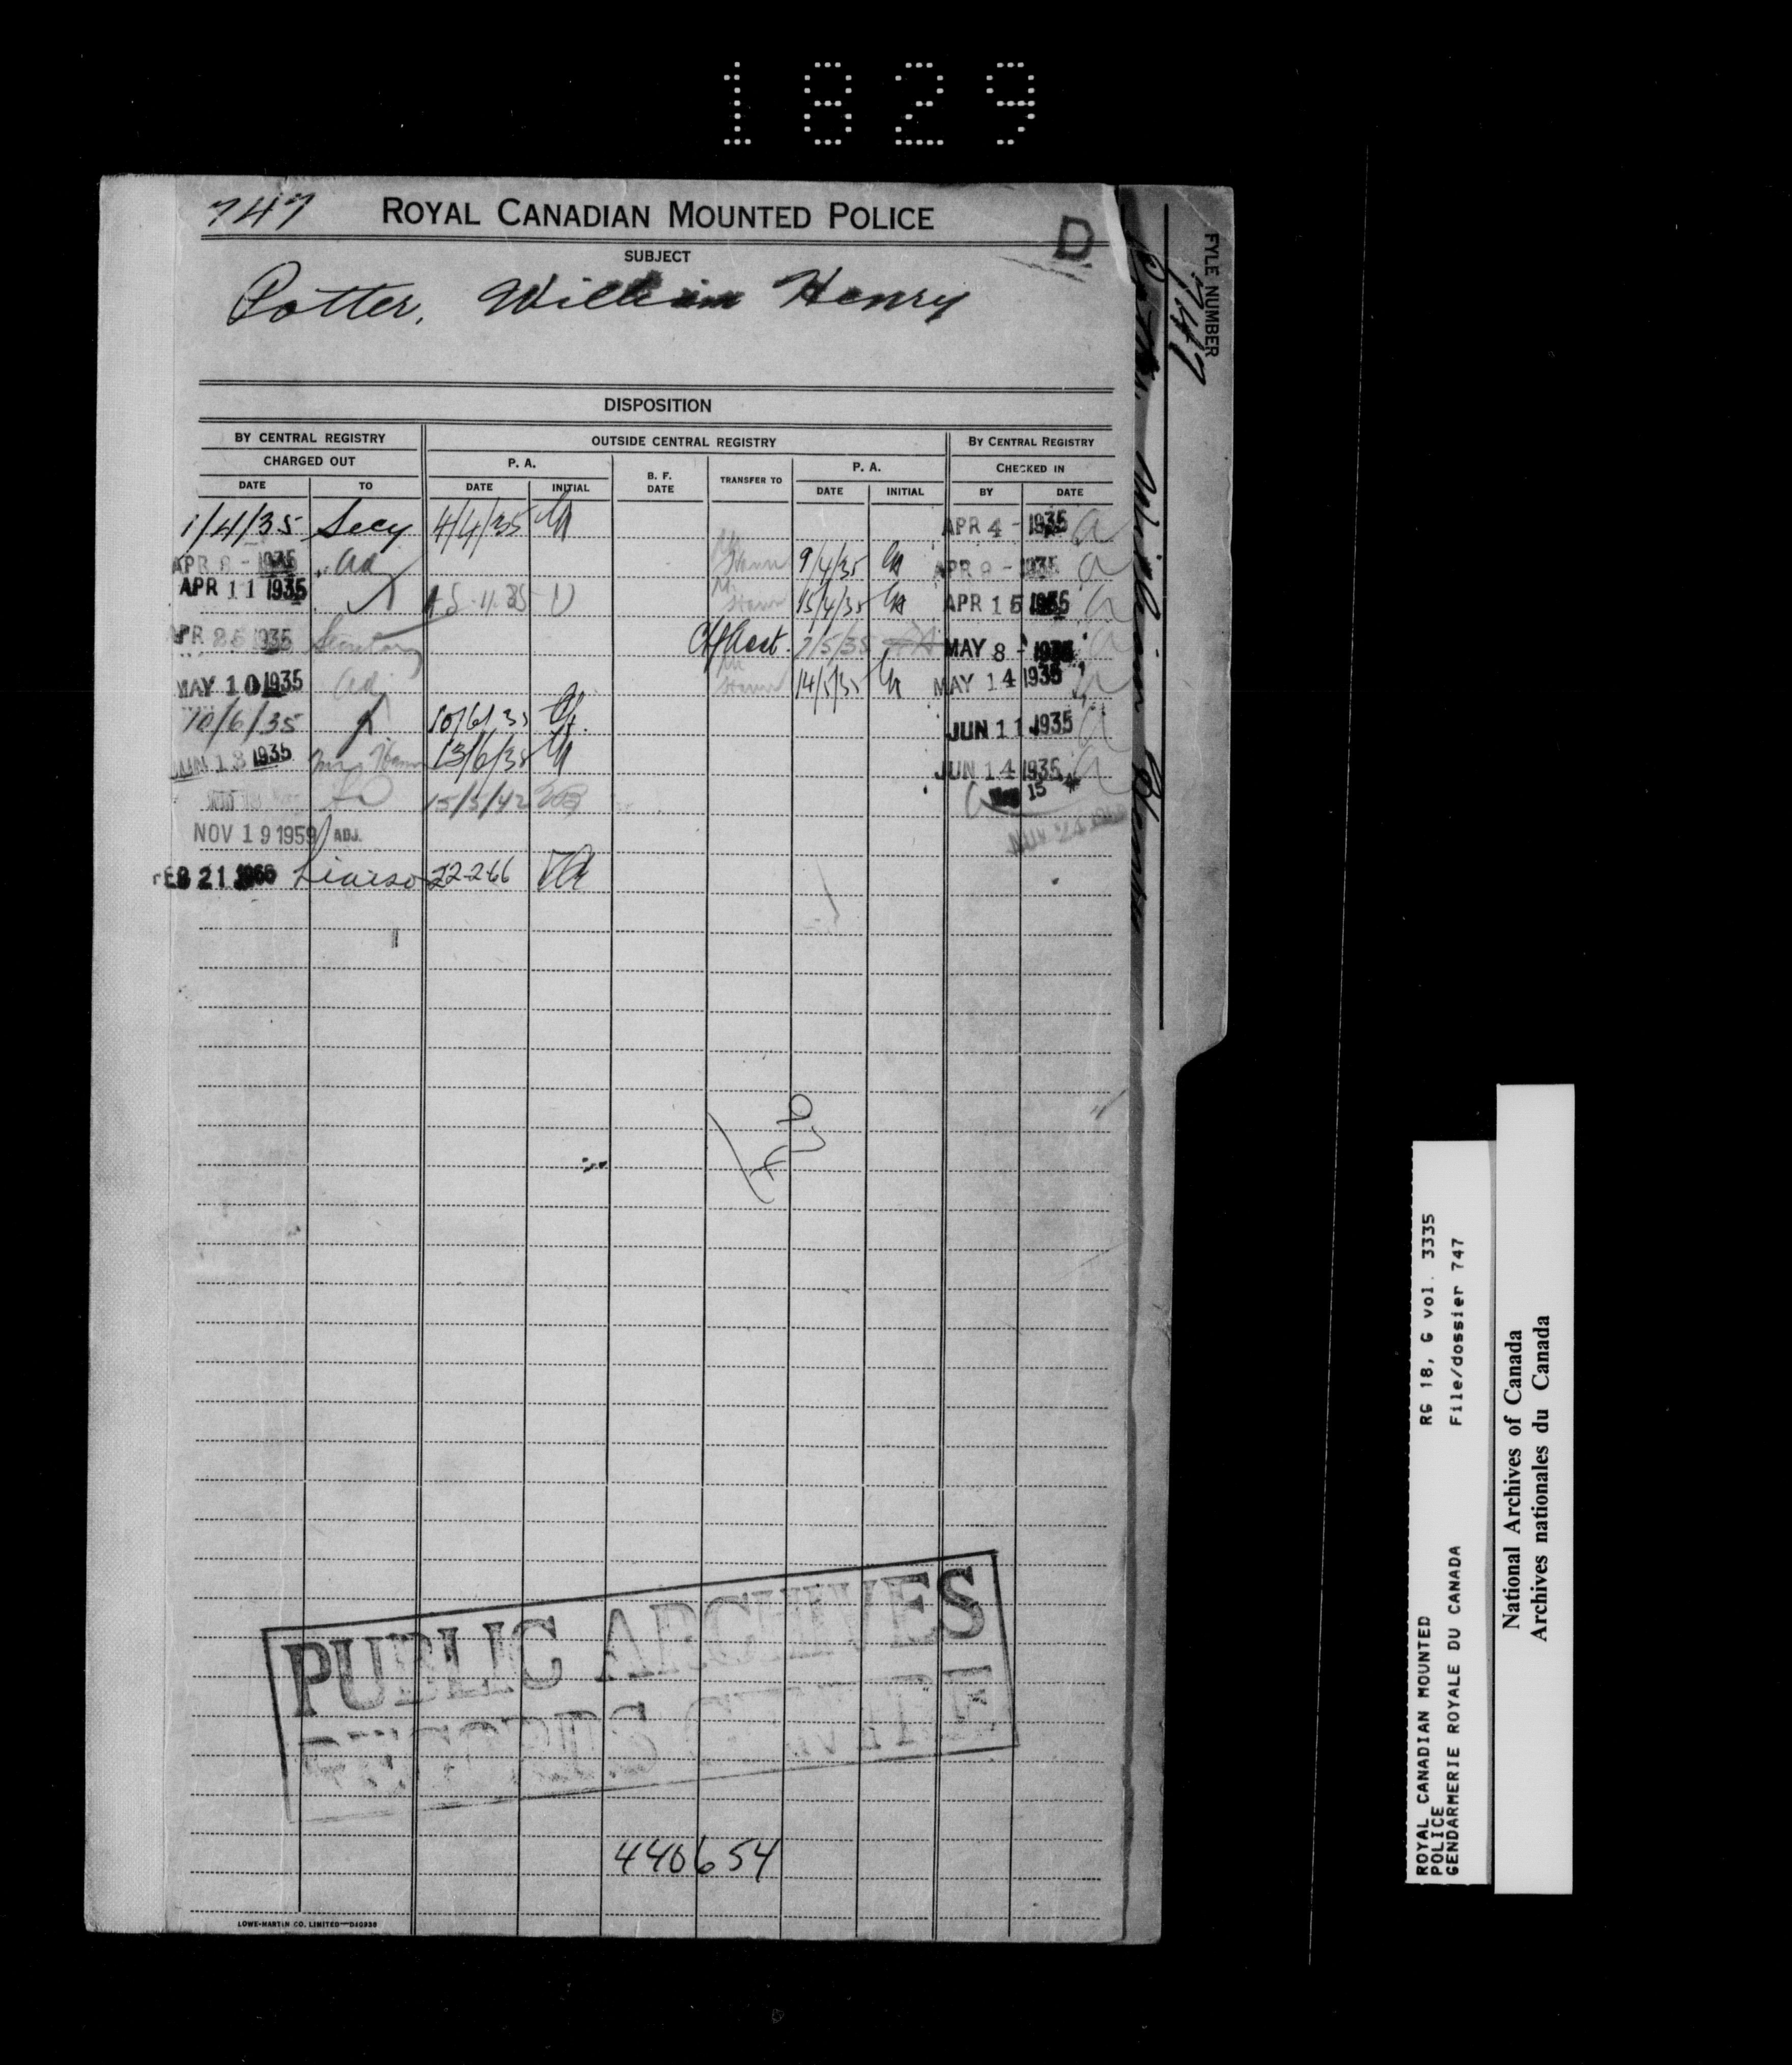 1829
747 ROYAL CANADIAN MOUNTED POLICE
D
SUBJECT
Potter, William Henry
DISPOSITION
BY CENTRAL REGISTRY OUTSIDE CENTRAL REGISTRY BY CENTRAL REGISTRY
CHARGED OUT P. A. B. F. DATE TRANSFER TO P. A. CHECKED IN
DATE TO DATE INITIAL DATE INITIAL BY DATE
1/4/35 Secy 4/4/35 APR 4 - 1935 a
APR 8 - 1935 Adj 9/4/35 APR 9 - 1935 a
APR 11 1935 15/4/35 APR 15 1935 a
APR 25 1935 Secretary 7/5/35 MAY 8 - 1935 a
MAY 10 1935 Adj 14/5/35 MAY 14 1935 a
10/6/35 10/6/35 JUN 11 1935 a
JUN 13 1935 13/6/35 JUN 14 1935 a
15/5/42 15
NOV 19 1959 ADJ.
FEB 21 1966 22-2-66
PUBLIC ARCHIVES
RECORDS CENTRE
440654
LOWE-MARTIN CO. LIMITED
FYLE NUMBER
747
Potter, William Henry
ROYAL CANADIAN MOUNTED RG 18, G vol. 3335
POLICE
GENDARMERIE ROYALE DU CANADA File/dossier 747
National Archives of Canada
Archives nationales du Canada